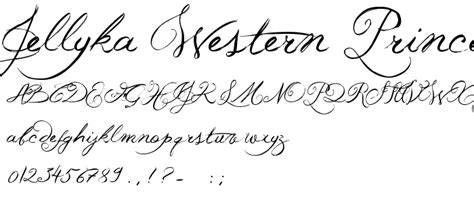 Jellyka Western Prince
ABCDEFGHIJKLMNOPQRSTUVWX
abcdefghijklmnopqrstuvwxyz
0123456789.,!?-_ :;